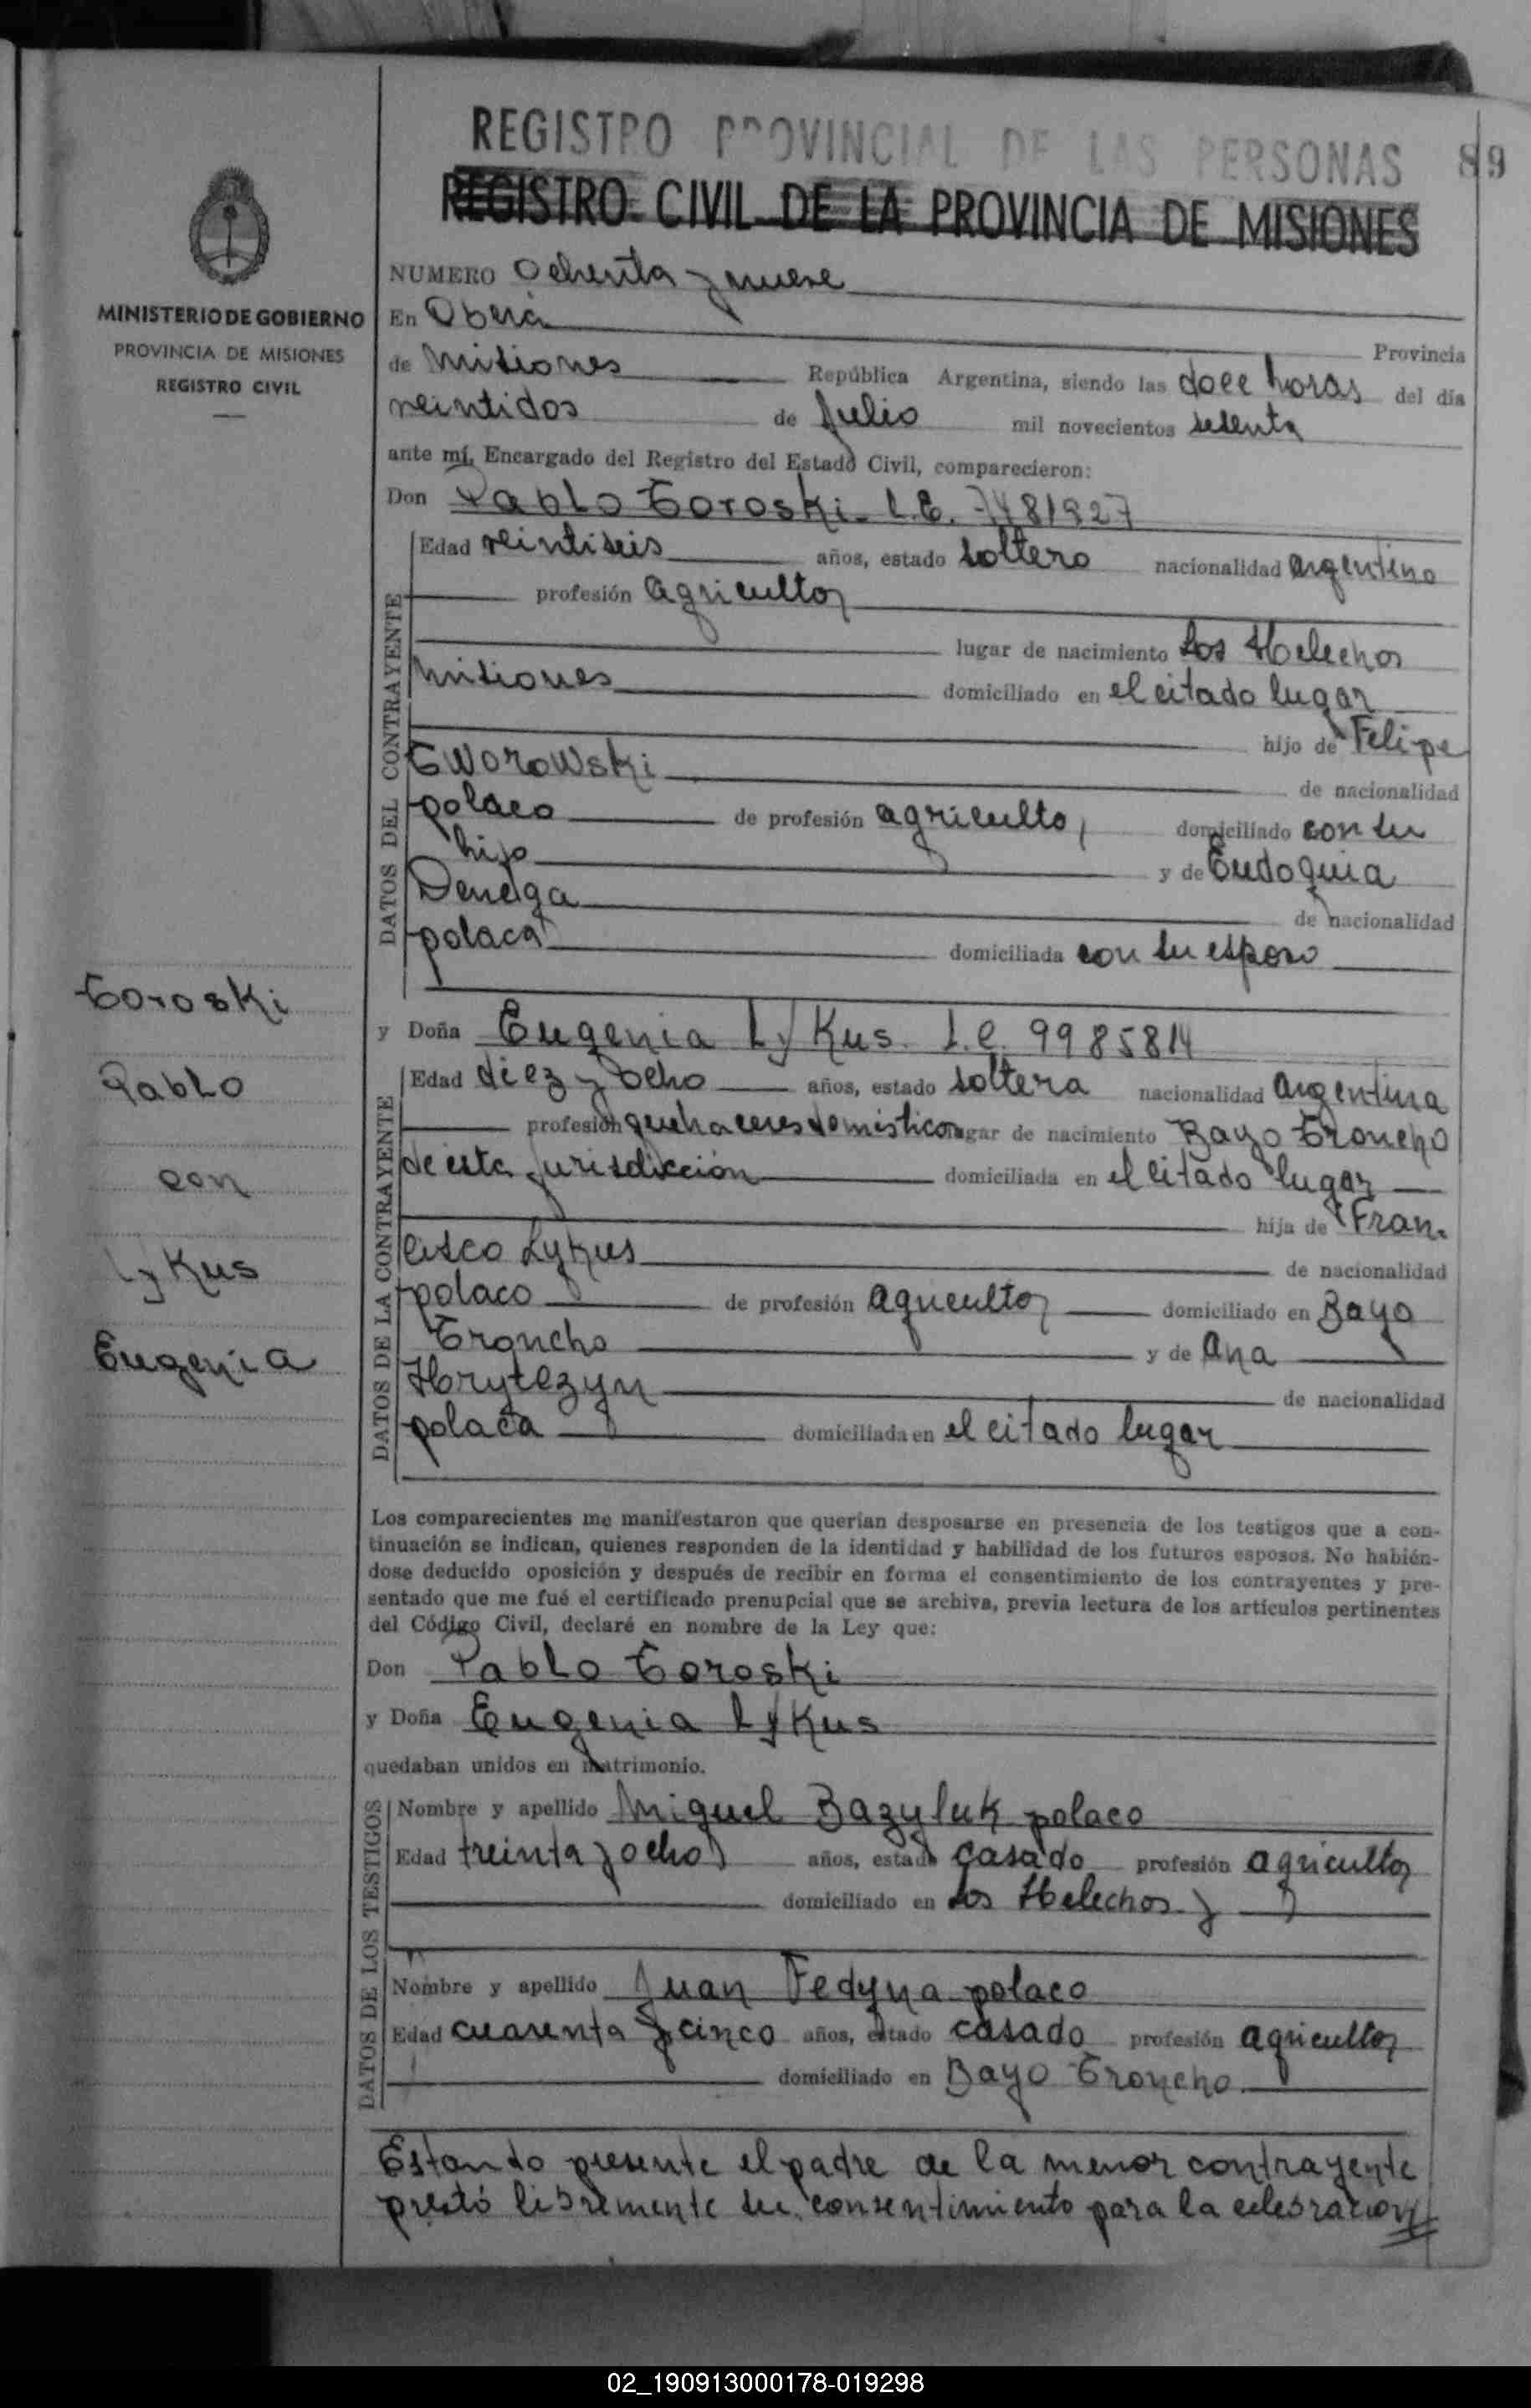 REGISTRO PROVINCIAL DE LAS PERSONAS 89
REGISTRO CIVIL DE LA PROVINCIA DE MISIONES
MINISTERIO DE GOBIERNO
PROVINCIA DE MISIONES
REGISTRO CIVIL
NUMERO Ochenta y nueve
En Oberá
Provincia
de Misiones República Argentina, siendo las doce horas del día
veintidos de Julio mil novecientos setenta
ante mí, Encargado del Registro del Estado Civil, comparecieron:
Don Pablo Toroski. L.E. 7481927
DATOS DEL CONTRAYENTE
Edad veintiseis años, estado soltero nacionalidad argentino
profesión Agricultor
lugar de nacimiento Los Helechos
Misiones domiciliado en el citado lugar
hijo de Felipe
Tworowski de nacionalidad
polaco de profesión agricultor domiciliado con su
hijo y de Eudoquia
Denega de nacionalidad
polaca domiciliada con su esposo
Toroski
Pablo
con
Lykus
Eugenia
y Doña Eugenia Lykus. L.C. 9985814
DATOS DE LA CONTRAYENTE
Edad diez y ocho años, estado soltera nacionalidad argentina
profesión quehaceres domésticos lugar de nacimiento Bayo Troncho
de esta jurisdicción domiciliada en el citado lugar
hija de Fran-
cisco Lykus de nacionalidad
polaco de profesión agricultor domiciliado en Bayo
Troncho y de Ana
Hrytezyn de nacionalidad
polaca domiciliada en el citado lugar
Los comparecientes me manifestaron que querían desposarse en presencia de los testigos que a con-
tinuación se indican, quienes responden de la identidad y habilidad de los futuros esposos. No habién-
dose deducido oposición y después de recibir en forma el consentimiento de los contrayentes y pre-
sentado que me fué el certificado prenupcial que se archiva, previa lectura de los artículos pertinentes
del Código Civil, declaré en nombre de la Ley que:
Don Pablo Toroski
y Doña Eugenia Lykus
quedaban unidos en matrimonio.
DATOS DE LOS TESTIGOS
Nombre y apellido Miguel Bazyluk polaco
Edad treinta y ocho años, estado casado profesión agricultor
domiciliado en Los Helechos y
Nombre y apellido Juan Fedyna polaco
Edad cuarenta y cinco años, estado casado profesión agricultor
domiciliado en Bayo Troncho.
Estando presente el padre de la menor contrayente
prestó libremente su consentimiento para la celebracion
02_190913000178-019298